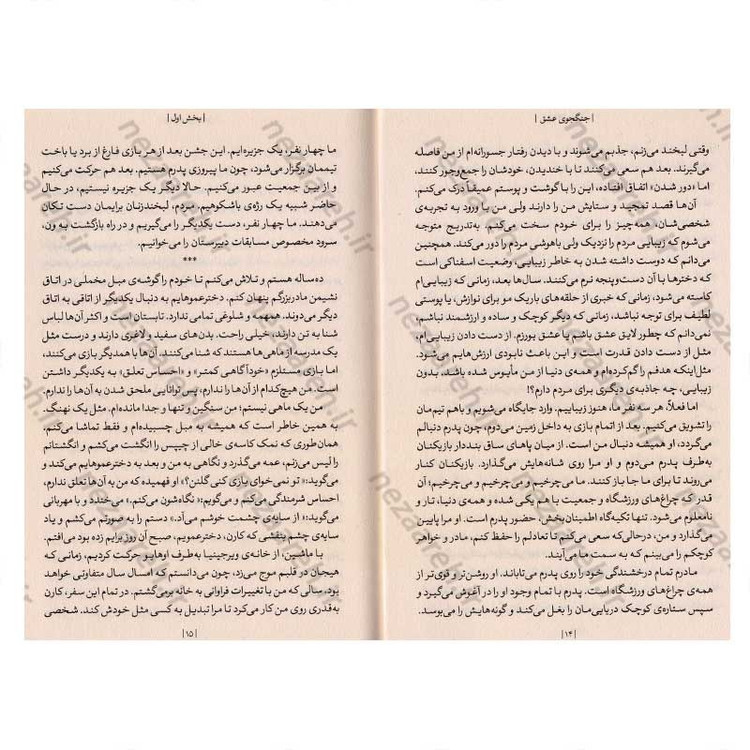 | جنگجوی عشق |
وقتی لبخند می‌زنم، جذبم می‌شوند و با دیدن رفتار جسورانه‌ام از من فاصله
می‌گیرند. بعد هم سعی می‌کنند تا با خندیدن، خودشان را جمع‌وجور کنند،
اما «دور شدن» اتفاق افتاده، این را با گوشت و پوستم عمیقاً درک می‌کنم.
آن‌ها قصد تمجید و ستایش من را دارند ولی من با ورود به تجربه‌ی
شخصی‌شان، همه‌چیز را برای خودم سخت می‌کنم. به‌تدریج متوجه
می‌شوم که زیبایی مردم را نزدیک ولی باهوشی مردم را دور می‌کند. همچنین
می‌دانم که دوست داشته شدن به خاطر زیبایی، وضعیت اسفناکی است
که دخترها با آن دست‌وپنجه نرم می‌کنند. سال‌ها بعد، زمانی که زیبایی‌ام
کاسته می‌شود، زمانی که خبری از حلقه‌های باریک مو برای نوازش، یا پوستی
لطیف برای توجه نباشد، زمانی که دیگر کوچک و ساده و ارزشمند نباشم،
نمی‌دانم که چطور لایق عشق باشم یا عشق بورزم. از دست دادن زیبایی‌ام،
مثل از دست دادن قدرت است و این باعث نابودی ارزش‌هایم می‌شود.
مثل اینکه هدفم را گم کرده‌ام و همه‌ی دنیا از من مأیوس شده باشد. بدون
زیبایی، چه جاذبه‌ی دیگری برای مردم دارم؟!
اما فعلاً، هر سه نفر ما، هنوز زیباییم. وارد جایگاه می‌شویم و باهم تیم‌مان
را تشویق می‌کنیم. بعد از اتمام بازی به داخل زمین می‌دوم، چون پدرم دنبالم
می‌گردد، او همیشه دنبال من است. از میان پاهای ساق بنددار بازیکنان
به‌طرف پدرم می‌دوم و او مرا روی شانه‌هایش می‌گذارد. بازیکنان کنار
می‌روند تا برای ما جا باز کنند. ما می‌چرخیم و می‌چرخیم و می‌چرخیم؛ آن
قدر که چراغ‌های ورزشگاه و جمعیت با هم یکی شده و همه‌ی دنیا، تار و
نامعلوم می‌شود. تنها تکیه‌گاه اطمینان‌بخش، حضور پدرم است. او مرا پایین
می‌گذارد و من، درحالی‌که سعی می‌کنم تا تعادلم را حفظ کنم، مادر و خواهر
کوچکم را می‌بینم که به سمت ما می‌آیند.
مادرم تمام درخشندگی خود را روی پدرم می‌تاباند. او روشن‌تر و قوی‌تر از
همه‌ی چراغ‌های ورزشگاه است. پدرم با تمام وجود او را در آغوش می‌گیرد و
سپس ستاره‌ی کوچک دریایی‌مان را بغل می‌کند و گونه‌هایش را می‌بوسد.
| ۱۴ |
| بخش اول |
ما چهار نفر، یک جزیره‌ایم. این جشن بعد از هر بازی فارغ از برد یا باخت
تیممان برگزار می‌شود، چون ما پیروزی پدرم هستیم. بعد هم حرکت می‌کنیم
و از بین جمعیت عبور می‌کنیم. حالا دیگر یک جزیره نیستیم، در حال
حاضر شبیه یک رژه‌ی باشکوهیم. مردم، لبخندزنان برایمان دست تکان
می‌دهند. ما چهار نفر، دست یکدیگر را می‌گیریم و در راه بازگشت به ون،
سرود مخصوص مسابقات دبیرستان را می‌خوانیم.
***
ده‌ساله هستم و تلاش می‌کنم تا خودم را گوشه‌ی مبل مخملی در اتاق
نشیمن مادربزرگم پنهان کنم. دخترعموهایم به دنبال یکدیگر از اتاقی به اتاق
دیگر می‌دوند. همهمه و شلوغی تمامی ندارد. تابستان است و اکثر آن‌ها لباس
شنا به تن دارند، خیلی راحت. بدن‌های سفید و لاغری دارند و درست مثل
یک مدرسه از ماهی‌ها هستند که شنا می‌کنند. آن‌ها با همدیگر بازی می‌کنند،
اما بازی مستلزم «خودآگاهی کمتر» و «احساس تعلق» به یکدیگر داشتن
است. من هیچ‌کدام از آن‌ها را ندارم، پس توانایی ملحق شدن به آن‌ها را ندارم.
من یک ماهی نیستم؛ من سنگین و تنها و جدا مانده‌ام. مثل یک نهنگ.
به همین خاطر است که همیشه به مبل چسبیده‌ام و فقط تماشا می‌کنم.
همان‌طوری که نمک کاسه‌ی خالی از چیپس را انگشت می‌کشم و انگشتانم
را لیس می‌زنم، عمه می‌گذرد و نگاهی به من و بعد به دخترعموهایم می‌کند و
می‌گوید:« تو نمی‌خوای بازی کنی گلنن؟» او فهمیده که من به آن‌ها تعلق ندارم،
احساس شرمندگی می‌کنم و می‌گویم:« نگاه‌شون می‌کنم.» می‌خندد و با مهربانی
می‌گوید:« از سایه‌ی چشمت خوشم می‌آد.» دستم را به صورتم می‌کشم و یاد
سایه‌ی چشم بنفشی که کارن، دخترعمویم، صبح آن روز برایم زده بود می‌افتم.
با ماشین، از خانه‌ی ویرجینیا به‌طرف اوهایو حرکت کردیم، زمانی که
هیجان در قلبم موج می‌زد، چون می‌دانستم که امسال سال متفاوتی خواهد
بود. سالی که من با تغییرات فراوانی به خانه برمی‌گشتم. در تمام این سفر، کارن
به‌قدری روی من کار می‌کرد تا مرا تبدیل به کسی مثل خودش کند. شخصی
| ۱۵ |
nezaareh.ir